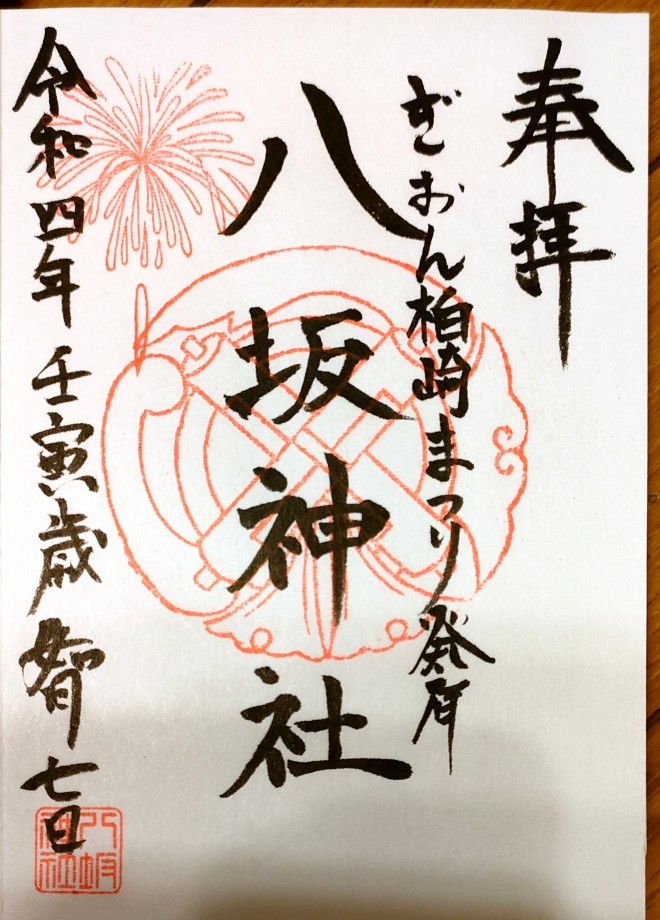 奉拝
ぎおん柏崎まつり発祥
八坂神社
令和四年 壬寅歳 七日
八坂神社